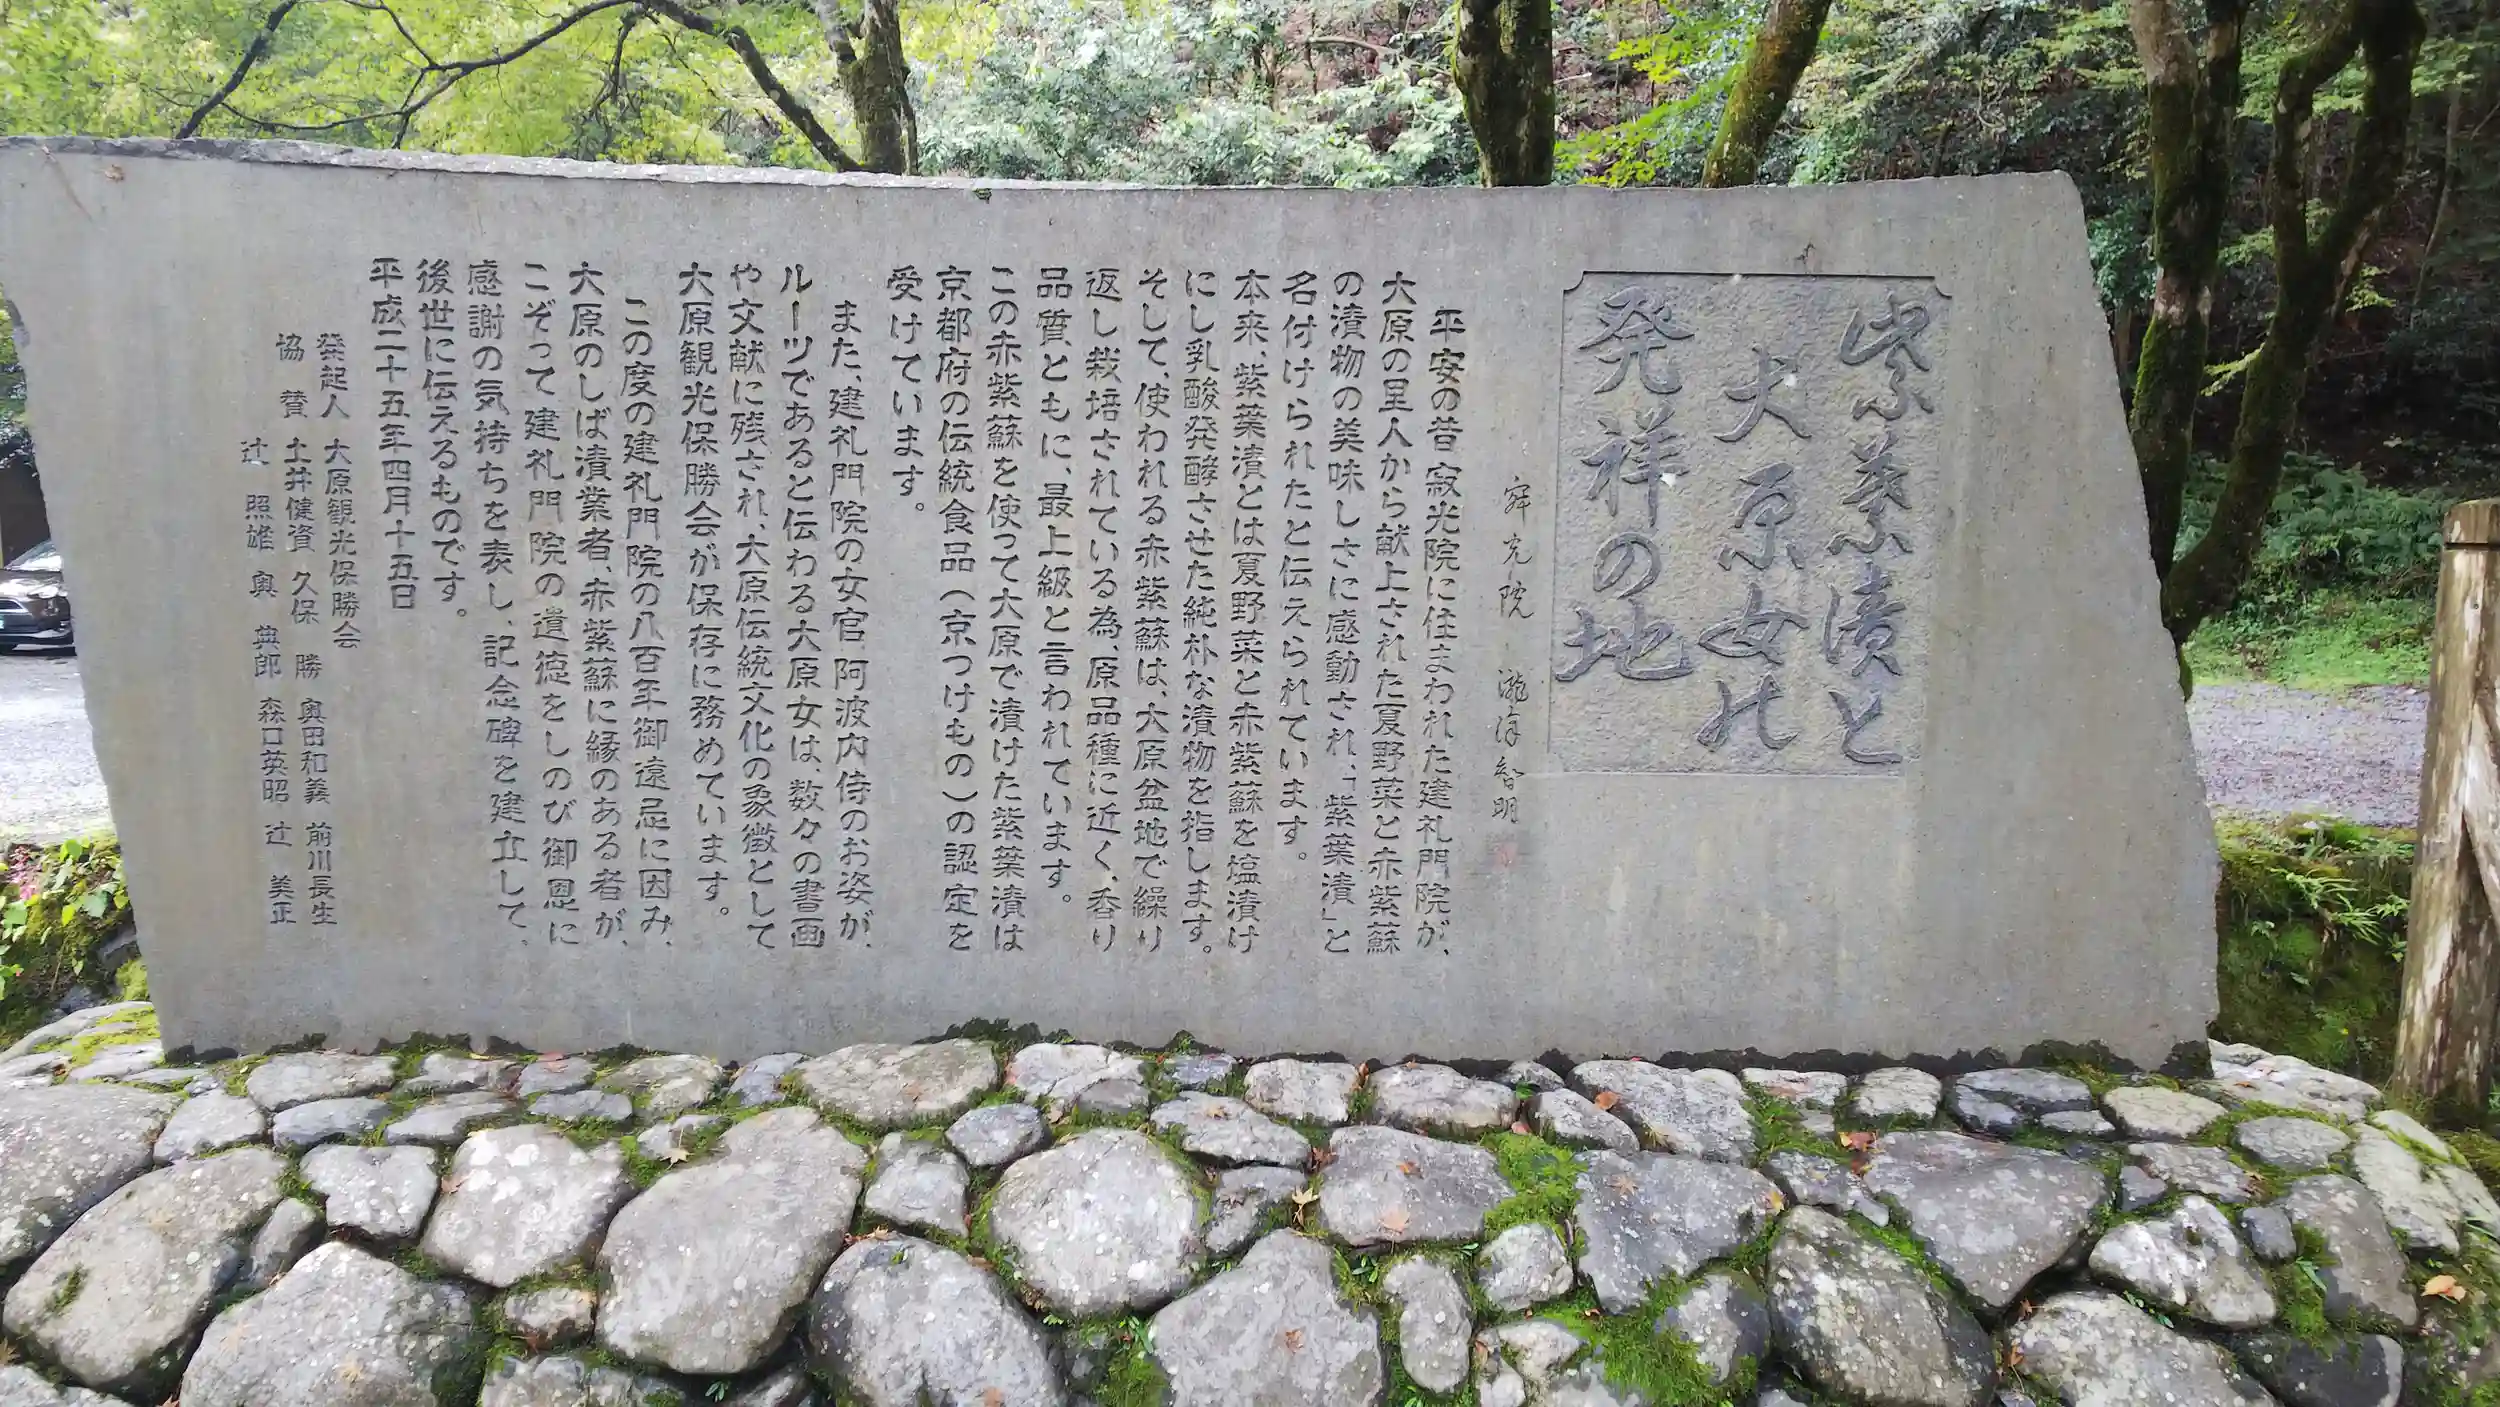 紫葉漬と
大原女の
発祥の地
寂光院 瀧澤智明
平安の昔 寂光院に住まわれた建礼門院が、
大原の里人から献上された夏野菜と赤紫蘇
の漬物の美味しさに感動され、「紫葉漬」と
名付けられたと伝えられています。
本来、紫葉漬とは夏野菜と赤紫蘇を塩漬け
にし乳酸発酵させた純朴な漬物を指します。
そして、使われる赤紫蘇は、大原盆地で繰り
返し栽培されている為、原品種に近く、香り
品質ともに、最上級と言われています。
この赤紫蘇を使って大原で漬けた紫葉漬は
京都府の伝統食品(京つけもの)の認定を
受けています。
また、建礼門院の女官 阿波内侍のお姿が、
ルーツであると伝わる大原女は、数々の書画
や文献に残され、大原伝統文化の象徴として
大原観光保勝会が保存に務めています。
この度の建礼門院の八百年御遠忌に因み、
大原のしば漬業者、赤紫蘇に縁のある者が、
こぞって建礼門院の遺徳をしのび御恩に
感謝の気持ちを表し、記念碑を建立して、
後世に伝えるものです。
平成二十五年四月十五日
発起人 大原観光保勝会
協賛 土井健資 久保勝 奥田和義 前川長生
辻照雄 奥典郎 森口英昭 辻美正